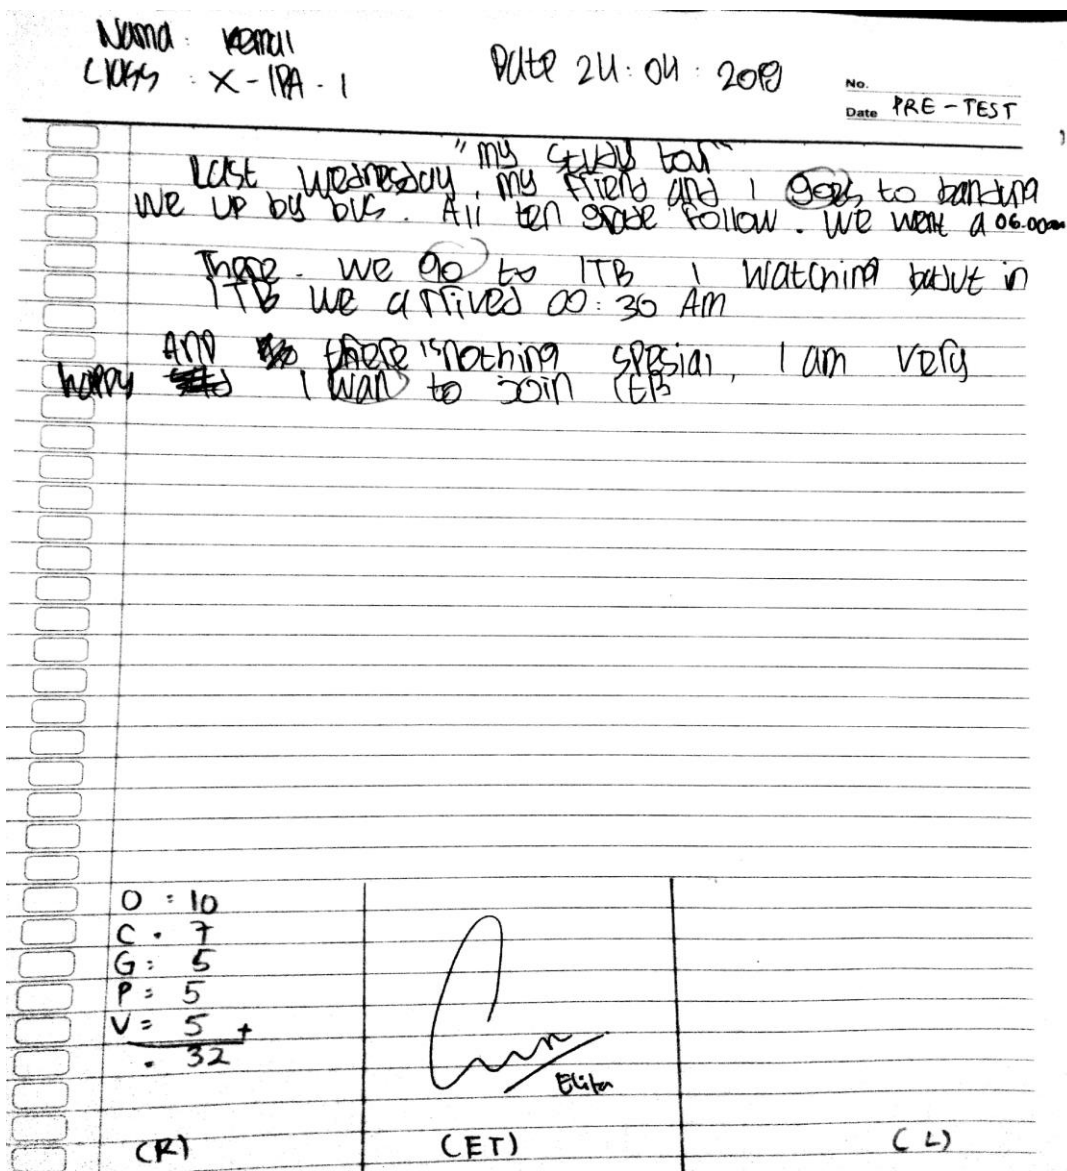 Nama : Kemal
Class : X - IPA - 1
Date 24 : 04 : 2019
No.
Date PRE - TEST
"my study tour"
Last Wednesday, my friend and I goes to bandung
We up by bus. All ten grade follow. We went a 06.00am
There. We go to ITB I watching in
ITB We arrived 00:30 Am
And there is nothing spesial, I am very
happy I wan to join ITB
O : 10
C . 7
G : 5
P = 5
V = 5 +
. 32
Elita
(R)
(ET)
(L)